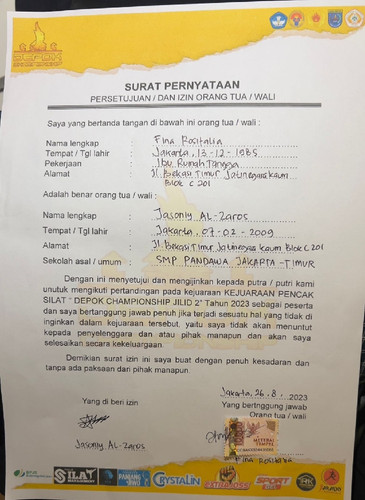 DEPOK
SURAT PERNYATAAN
PERSETUJUAN / DAN IZIN ORANG TUA / WALI
Saya yang bertanda tangan di bawah ini orang tua / wali :
Nama lengkap : Fina Rositalia
Tempat / Tgl lahir : Jakarta, 13-12-1985
Pekerjaan : Ibu Rumah Tangga
Alamat : Jl. Bekasi Timur Jatinegara Kaum
Blok C 201
Adalah benar orang tua / wali :
Nama lengkap : Jasoniy AL-Zaros
Tempat / Tgl lahir : Jakarta, 07-02-2009
Alamat : Jl. Bekasi Timur Jatinegara Kaum Blok C 201
Sekolah asal / umum : SMP PANDAWA JAKARTA-TIMUR
Dengan ini menyetujui dan mengijinkan kepada putra / putri kami
unutuk mengikuti pertandingan pada kejuaraan KEJUARAAN PENCAK
SILAT " DEPOK CHAMPIONSHIP JILID 2" Tahun 2023 sebagai peserta
dan saya bertanggung jawab penuh jika terjadi sesuatu hal yang tidak di
inginkan dalam kejuaraan tersebut, yaitu saya tidak akan menuntut
kepada penyelenggara dan atau pihak manapun dan akan saya
selesaikan secara kekeluargaan.
Demikian surat izin ini saya buat dengan penuh kesadaran dan
tanpa ada paksaan dari pihak manapun.
Jakarta, 26.8. 2023
Yang di beri izin
Yang bertnggung jawab
Orang tua / wali
METERAI
TEMPEL
Jasoniy AL-Zaros
Fina Rositalia
SILAT
CRYSTALIN
SPORT